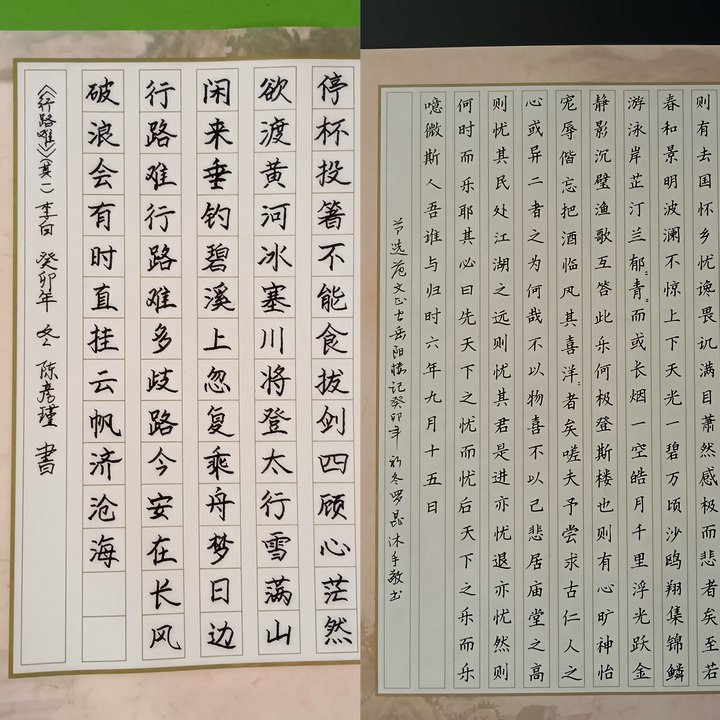 停杯投箸不能食拔剑四顾心茫然
欲渡黄河冰塞川将登太行雪满山
闲来垂钓碧溪上忽复乘舟梦日边
行路难行路难多歧路今安在长风
破浪会有时直挂云帆济沧海
《行路难》(其一) 李白 癸卯年 冬 陈彦瑾 書
则有去国怀乡忧谗畏讥满目萧然感极而悲者矣至若
春和景明波澜不惊上下天光一碧万顷沙鸥翔集锦鳞
游泳岸芷汀兰郁〻青〻而或长烟一空皓月千里浮光跃金
静影沉璧渔歌互答此乐何极登斯楼也则有心旷神怡
宠辱偕忘把酒临风其喜洋〻者矣嗟夫予尝求古仁人之
心或异二者之为何哉不以物喜不以己悲居庙堂之高
则忧其民处江湖之远则忧其君是进亦忧退亦忧然则
何时而乐耶其必曰先天下之忧而忧后天下之乐而乐
噫微斯人吾谁与归时六年九月十五日
节选范文正岳阳楼记癸卯年初冬罗晶沐手敬书